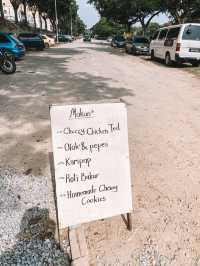 Makan²
~ Cheezy Chicken Tod
~ Otak² & pepes
~ Karipap
~ Roti Bakar
~ Homemade Chewy
Cookies